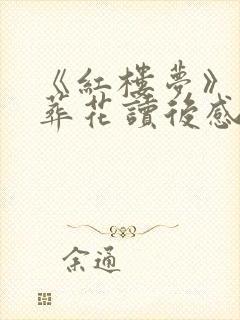 《紅樓夢》
葬花讀後感
余通